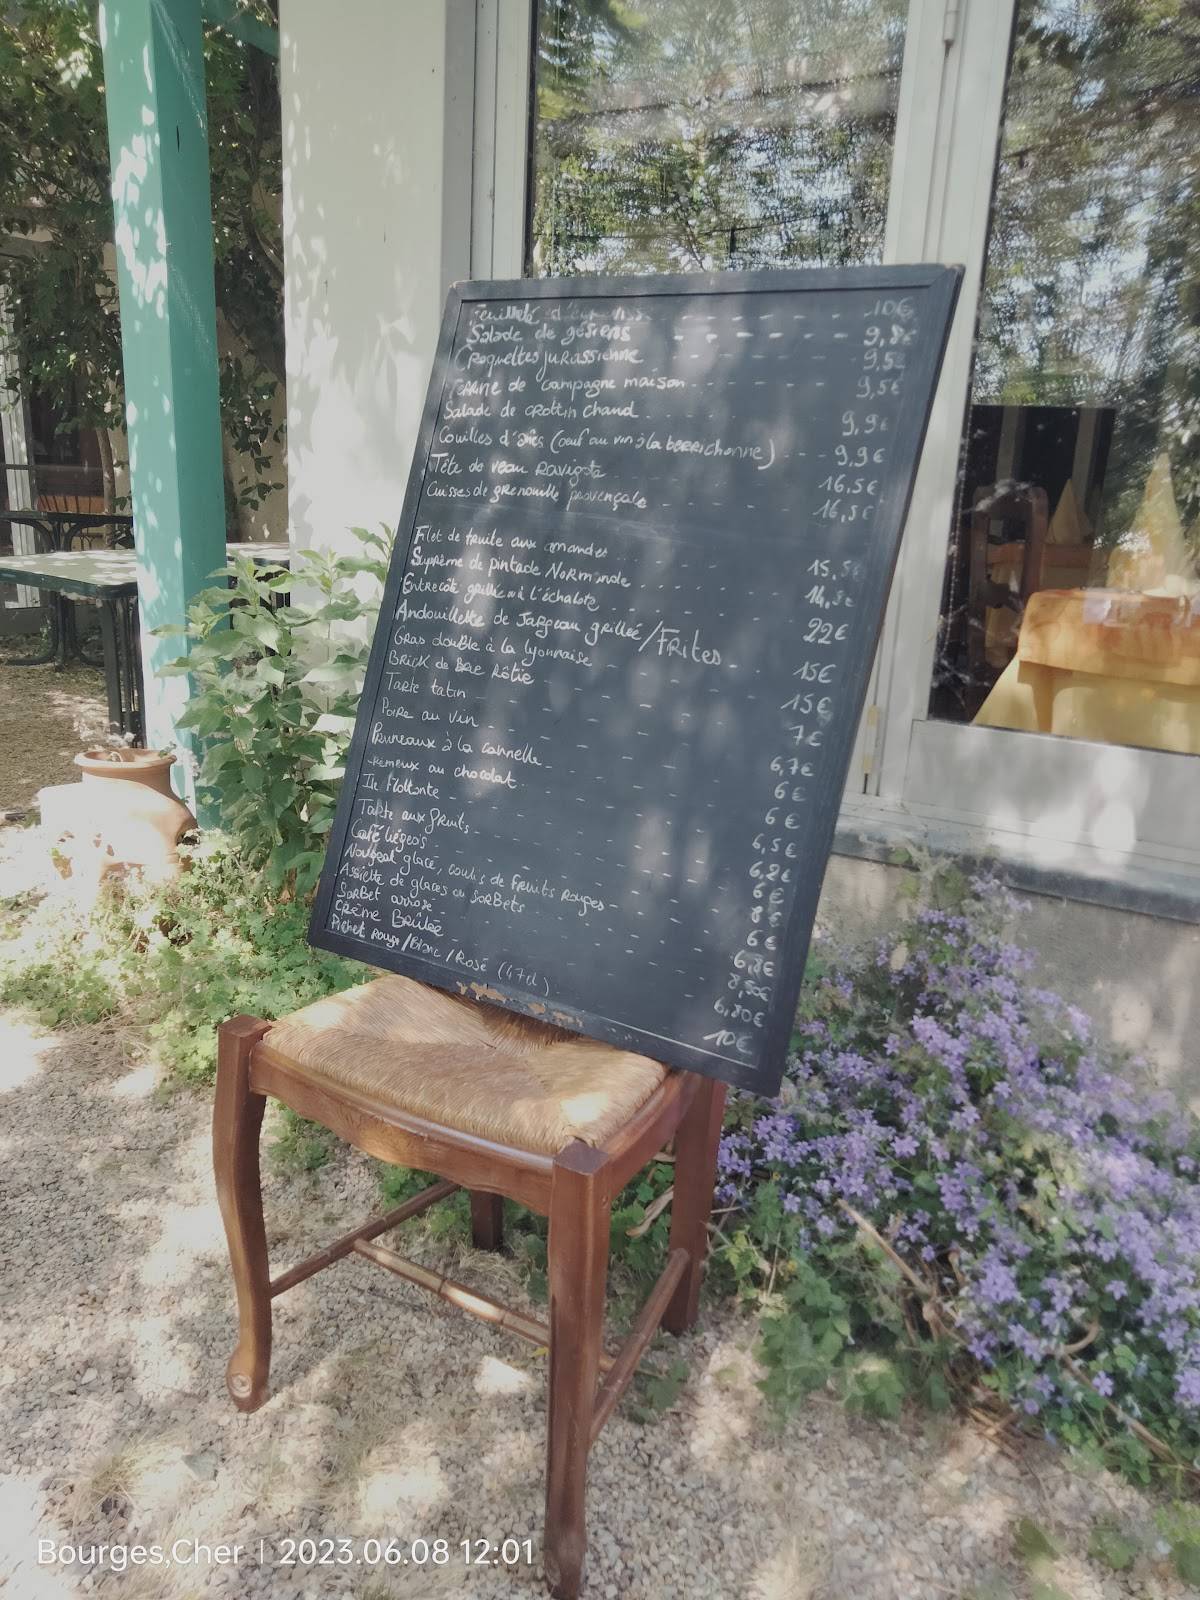 Feuilleté 10€
Salade de gésiers 9,8€
Croquettes jurassienne 9,5€
Terrine de campagne maison 9,5€
Salade de crottin chaud 9,9€
Couilles d'ânes (oeuf au vin à la berrichonne) 9,9€
Tête de veau Ravigote 16,5€
Cuisses de grenouille provençale 16,5€
Filet de truite aux amandes 15,5€
Suprême de pintade Normande 14,5€
Entrecôte grillée à l'échalote 22€
Andouillette de Jargeau grillée/Frites 15€
Gras double à la lyonnaise 15€
Brick de Brie Rôtie 7€
Tarte tatin 6,7€
Poire au vin 6€
Pruneaux à la cannelle 6€
au chocolat 6,5€
Ile flottante 6,2€
Tarte aux fruits 6€
Café liégeois 8€
Nougat glacé, coulis de fruits Rouges 6€
Assiette de glaces ou sorbets 6,8€
Sorbet arrosé 8,50€
Crème Brûlée 6,80€
Pichet Rouge/Blanc/Rosé (47cl) 10€
Bourges,Cher | 2023.06.08 12:01